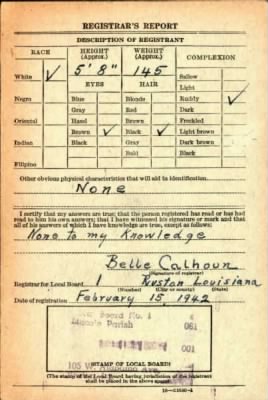 REGISTRAR'S REPORT
DESCRIPTION OF REGISTRANT
RACE HEIGHT (Approx.) WEIGHT (Approx.) COMPLEXION
White ✓ 5' 8" 145 Sallow
EYES HAIR Light
Negro Blue Blonde Ruddy ✓
Gray Red Dark
Oriental Hazel Brown Freckled
Brown ✓ Black ✓ Light brown
Indian Black Gray Dark brown
Bald Black
Filipino
Other obvious physical characteristics that will aid in identification
None
I certify that my answers are true; that the person registered has read or has had
read to him his own answers; that I have witnessed his signature or mark and that
all of his answers of which I have knowledge are true, except as follows:
None to my Knowledge
Belle Calhoun
(Signature of registrar)
Registrar for Local Board 1 Ruston Louisiana
(Number) (City or county) (State)
Date of registration February 15, 1942
Board No. 1
Parish 061
001
105 W.
STAMP OF LOCAL BOARD
(The stamp of the Local Board having jurisdiction of the registrant
shall be placed in the above space)